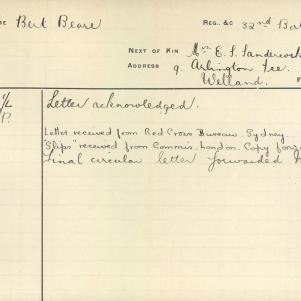 Bert Beare REG. &C 32nd Bat
NEXT OF KIN Mrs E. S. Sandercock
ADDRESS 9. Arlington Tce.
Welland.
Letter acknowledged.
Letter received from Red Cross Bureau. Sydney.
"Slips" received from Commis. London. Copy
Final circular letter forwarded